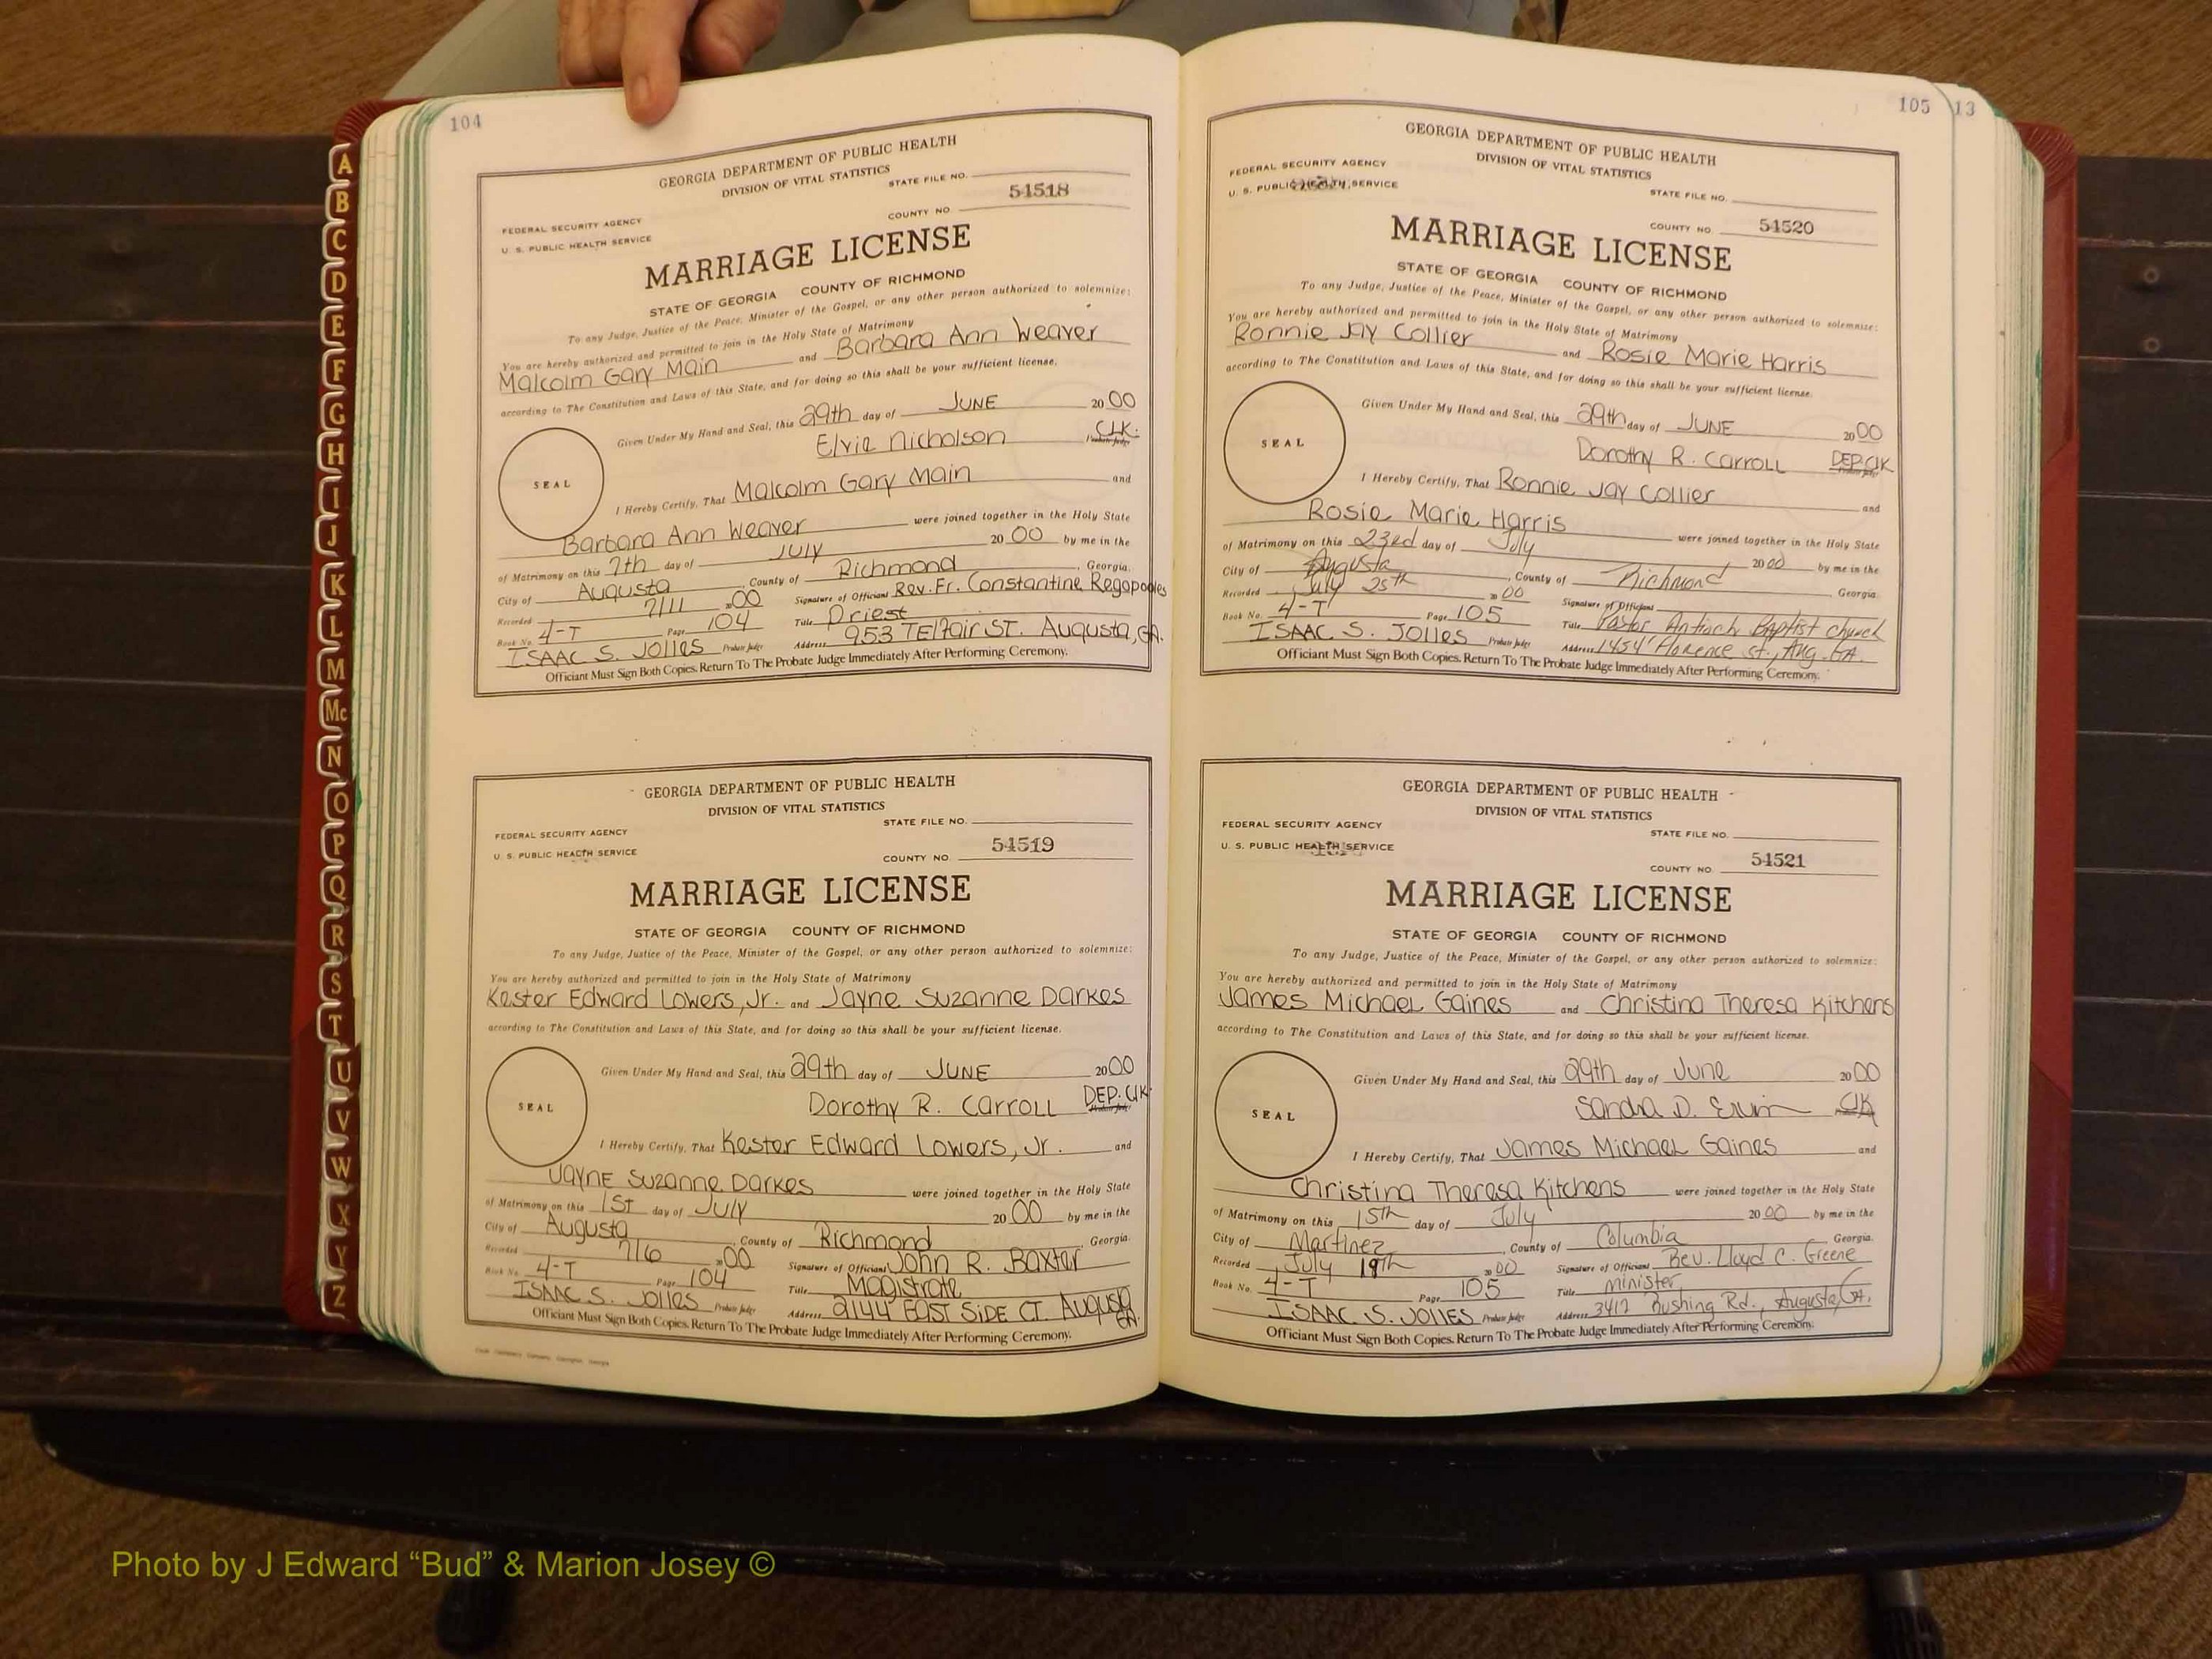 104
GEORGIA DEPARTMENT OF PUBLIC HEALTH
DIVISION OF VITAL STATISTICS
STATE FILE NO.
FEDERAL SECURITY AGENCY
U. S. PUBLIC HEALTH SERVICE
COUNTY NO 54518
MARRIAGE LICENSE
STATE OF GEORGIA COUNTY OF RICHMOND
To any Judge, Justice of the Peace, Minister of the Gospel, or any other person authorized to solemnize:
You are hereby authorized and permitted to join in the Holy State of Matrimony
Malcolm Gary Main and Barbara Ann Weaver
according to The Constitution and Laws of this State, and for doing so this shall be your sufficient license.
Given Under My Hand and Seal, this 29th day of JUNE 2000
Elvie Nicholson CLK.
SEAL
I Hereby Certify, That Malcolm Gary Main and
Barbara Ann Weaver were joined together in the Holy State
of Matrimony on this 7th day of JULY 20 00 by me in the
City of Augusta, County of Richmond, Georgia.
Recorded 7/11 00 Signature of Officiant Rev. Fr. Constantine Regopoules
Book No. 4-T Page 104 Title Priest
ISAAC S. JOLLES Probate Judge Address 953 TElfair ST. Augusta, GA.
Officiant Must Sign Both Copies. Return To The Probate Judge Immediately After Performing Ceremony.
GEORGIA DEPARTMENT OF PUBLIC HEALTH
DIVISION OF VITAL STATISTICS
STATE FILE NO.
FEDERAL SECURITY AGENCY
U. S. PUBLIC HEALTH SERVICE
COUNTY NO. 54519
MARRIAGE LICENSE
STATE OF GEORGIA COUNTY OF RICHMOND
To any Judge, Justice of the Peace, Minister of the Gospel, or any other person authorized to solemnize:
You are hereby authorized and permitted to join in the Holy State of Matrimony
Kester Edward Lowers, Jr. and Jayne Suzanne Darkes
according to The Constitution and Laws of this State, and for doing so this shall be your sufficient license.
Given Under My Hand and Seal, this 29th day of JUNE 2000
Dorothy R. Carroll DEP. CLK
SEAL
I Hereby Certify, That Kester Edward Lowers, Jr. and
JAYNE Suzanne Darkes were joined together in the Holy State
of Matrimony on this 1st day of July 20 00 by me in the
City of Augusta, County of Richmond, Georgia.
Recorded 7/6 00 Signature of Officiant John R. Baxter
Book No. 4-T Page 104 Title Magistrate
ISAAC S. JOLLES Probate Judge Address 2144 EAST SIDE CT. Augusta GA.
Officiant Must Sign Both Copies. Return To The Probate Judge Immediately After Performing Ceremony.
105 13
GEORGIA DEPARTMENT OF PUBLIC HEALTH
DIVISION OF VITAL STATISTICS
FEDERAL SECURITY AGENCY
U. S. PUBLIC HEALTH SERVICE
STATE FILE NO.
COUNTY NO 54520
MARRIAGE LICENSE
STATE OF GEORGIA COUNTY OF RICHMOND
To any Judge, Justice of the Peace, Minister of the Gospel, or any other person authorized to solemnize:
You are hereby authorized and permitted to join in the Holy State of Matrimony
Ronnie Jay Collier and Rosie Marie Harris
according to The Constitution and Laws of this State, and for doing so this shall be your sufficient license.
Given Under My Hand and Seal, this 29th day of JUNE 2000
Dorothy R. Carroll DEP. CLK
SEAL
I Hereby Certify, That Ronnie Jay Collier and
Rosie Marie Harris were joined together in the Holy State
of Matrimony on this 23rd day of July 20 00 by me in the
City of Augusta, County of Richmond Georgia.
Recorded July 25th 00 Signature of Officiant
Book No. 4-T Page 105 Title Pastor Antioch Baptist church
ISAAC S. JOLLES Probate Judge Address 1454 Florence St., Aug. GA.
Officiant Must Sign Both Copies. Return To The Probate Judge Immediately After Performing Ceremony.
GEORGIA DEPARTMENT OF PUBLIC HEALTH
DIVISION OF VITAL STATISTICS
FEDERAL SECURITY AGENCY
U. S. PUBLIC HEALTH SERVICE
STATE FILE NO.
COUNTY NO. 54521
MARRIAGE LICENSE
STATE OF GEORGIA COUNTY OF RICHMOND
To any Judge, Justice of the Peace, Minister of the Gospel, or any other person authorized to solemnize:
You are hereby authorized and permitted to join in the Holy State of Matrimony
James Michael Gaines and Christina Theresa Kitchens
according to The Constitution and Laws of this State, and for doing so this shall be your sufficient license.
Given Under My Hand and Seal, this 29th day of June 2000
Sandra D. Ervin Clk
SEAL
I Hereby Certify, That James Michael Gaines and
Christina Theresa Kitchens were joined together in the Holy State
of Matrimony on this 15th day of July 20 00 by me in the
City of Martinez, County of Columbia, Georgia.
Recorded July 19th 00 Signature of Officiant Rev. Lloyd C. Greene
Book No. 4-T Page 105 Title minister
ISAAC S. JOLLES Probate Judge Address 3417 Rushing Rd., Augusta, GA.
Officiant Must Sign Both Copies. Return To The Probate Judge Immediately After Performing Ceremony.
A
B
C
D
E
F
G
H
I
J
K
L
M
Mc
N
O
P
Q
R
S
T
U
V
W
X
Y
Z
Photo by J Edward “Bud” & Marion Josey ©